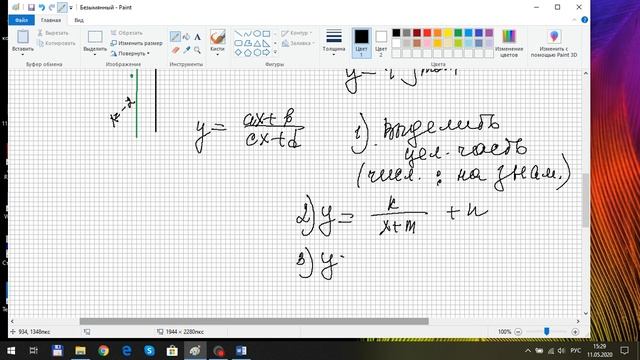 Безымянный - Paint
Файл Главная Вид
Вставить Вырезать Копировать Буфер обмена
Выделить Обрезать Изменить размер Повернуть Изображение
Инструменты
Кисти
Контур Заливка Фигуры
Толщина
Цвет 1 Цвет 2 Цвета Изменение цветов
Изменить с помощью Paint 3D
y = (ax+b)/(cx+d) 1). выделить
цел. часть
(числ. : на знам.)
2) y = k/(x+m) + n
3) y
934, 1348пкс 1944 × 2280пкс 100%
РУС 15:29
11.05.2020